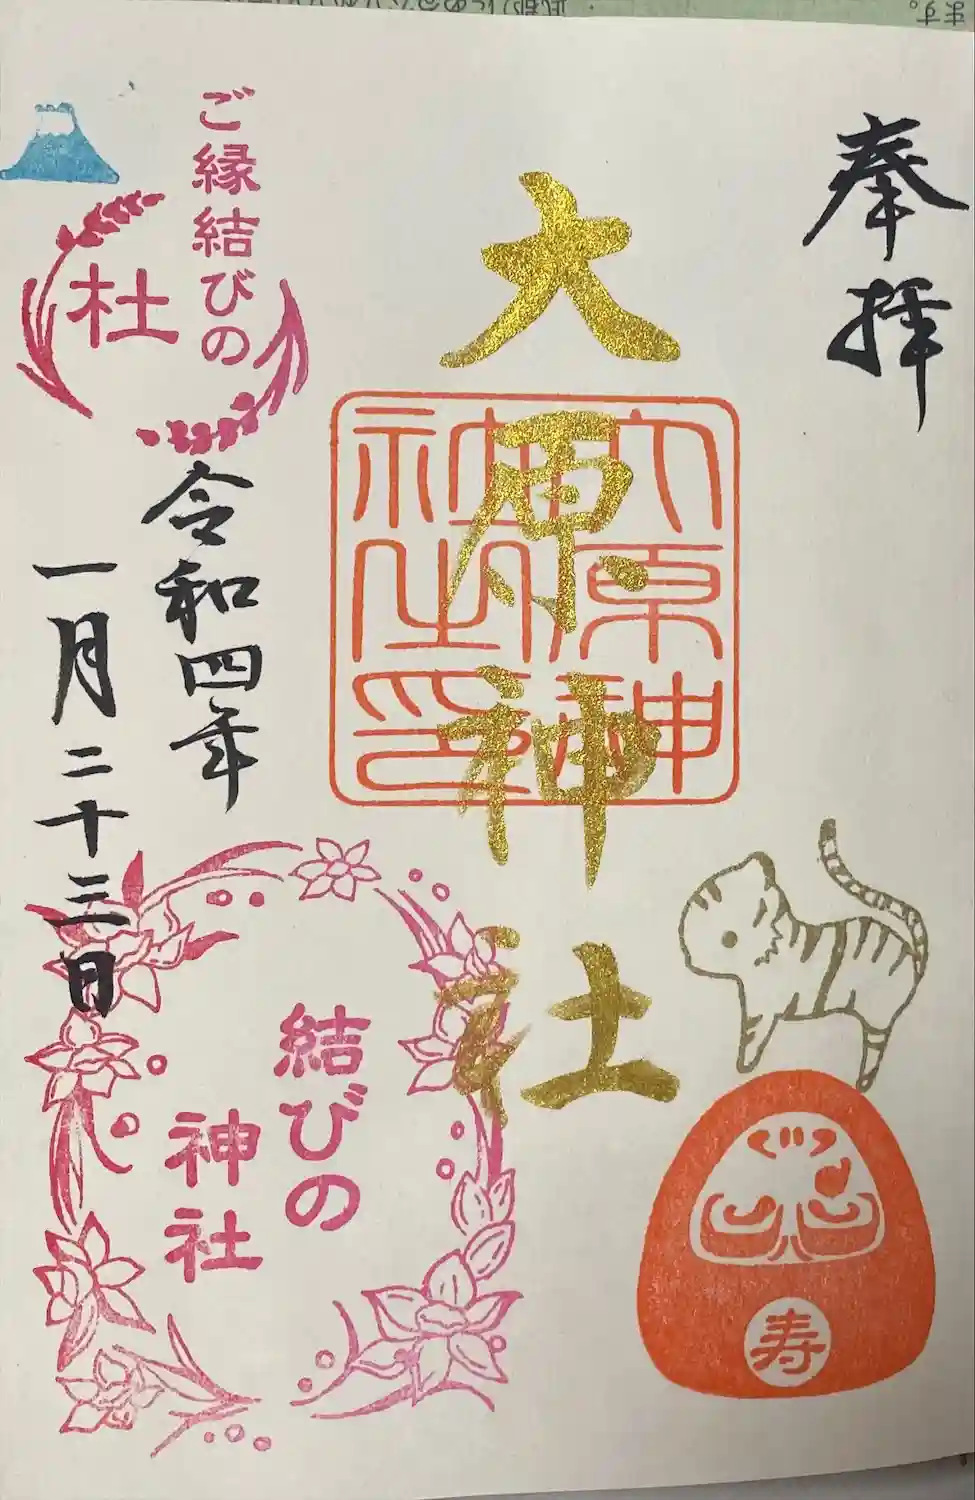 奉拝
大原神社
大原神社之印
ご縁結びの
杜
令和四年
一月二十三日
結びの
神社
寿
ます。